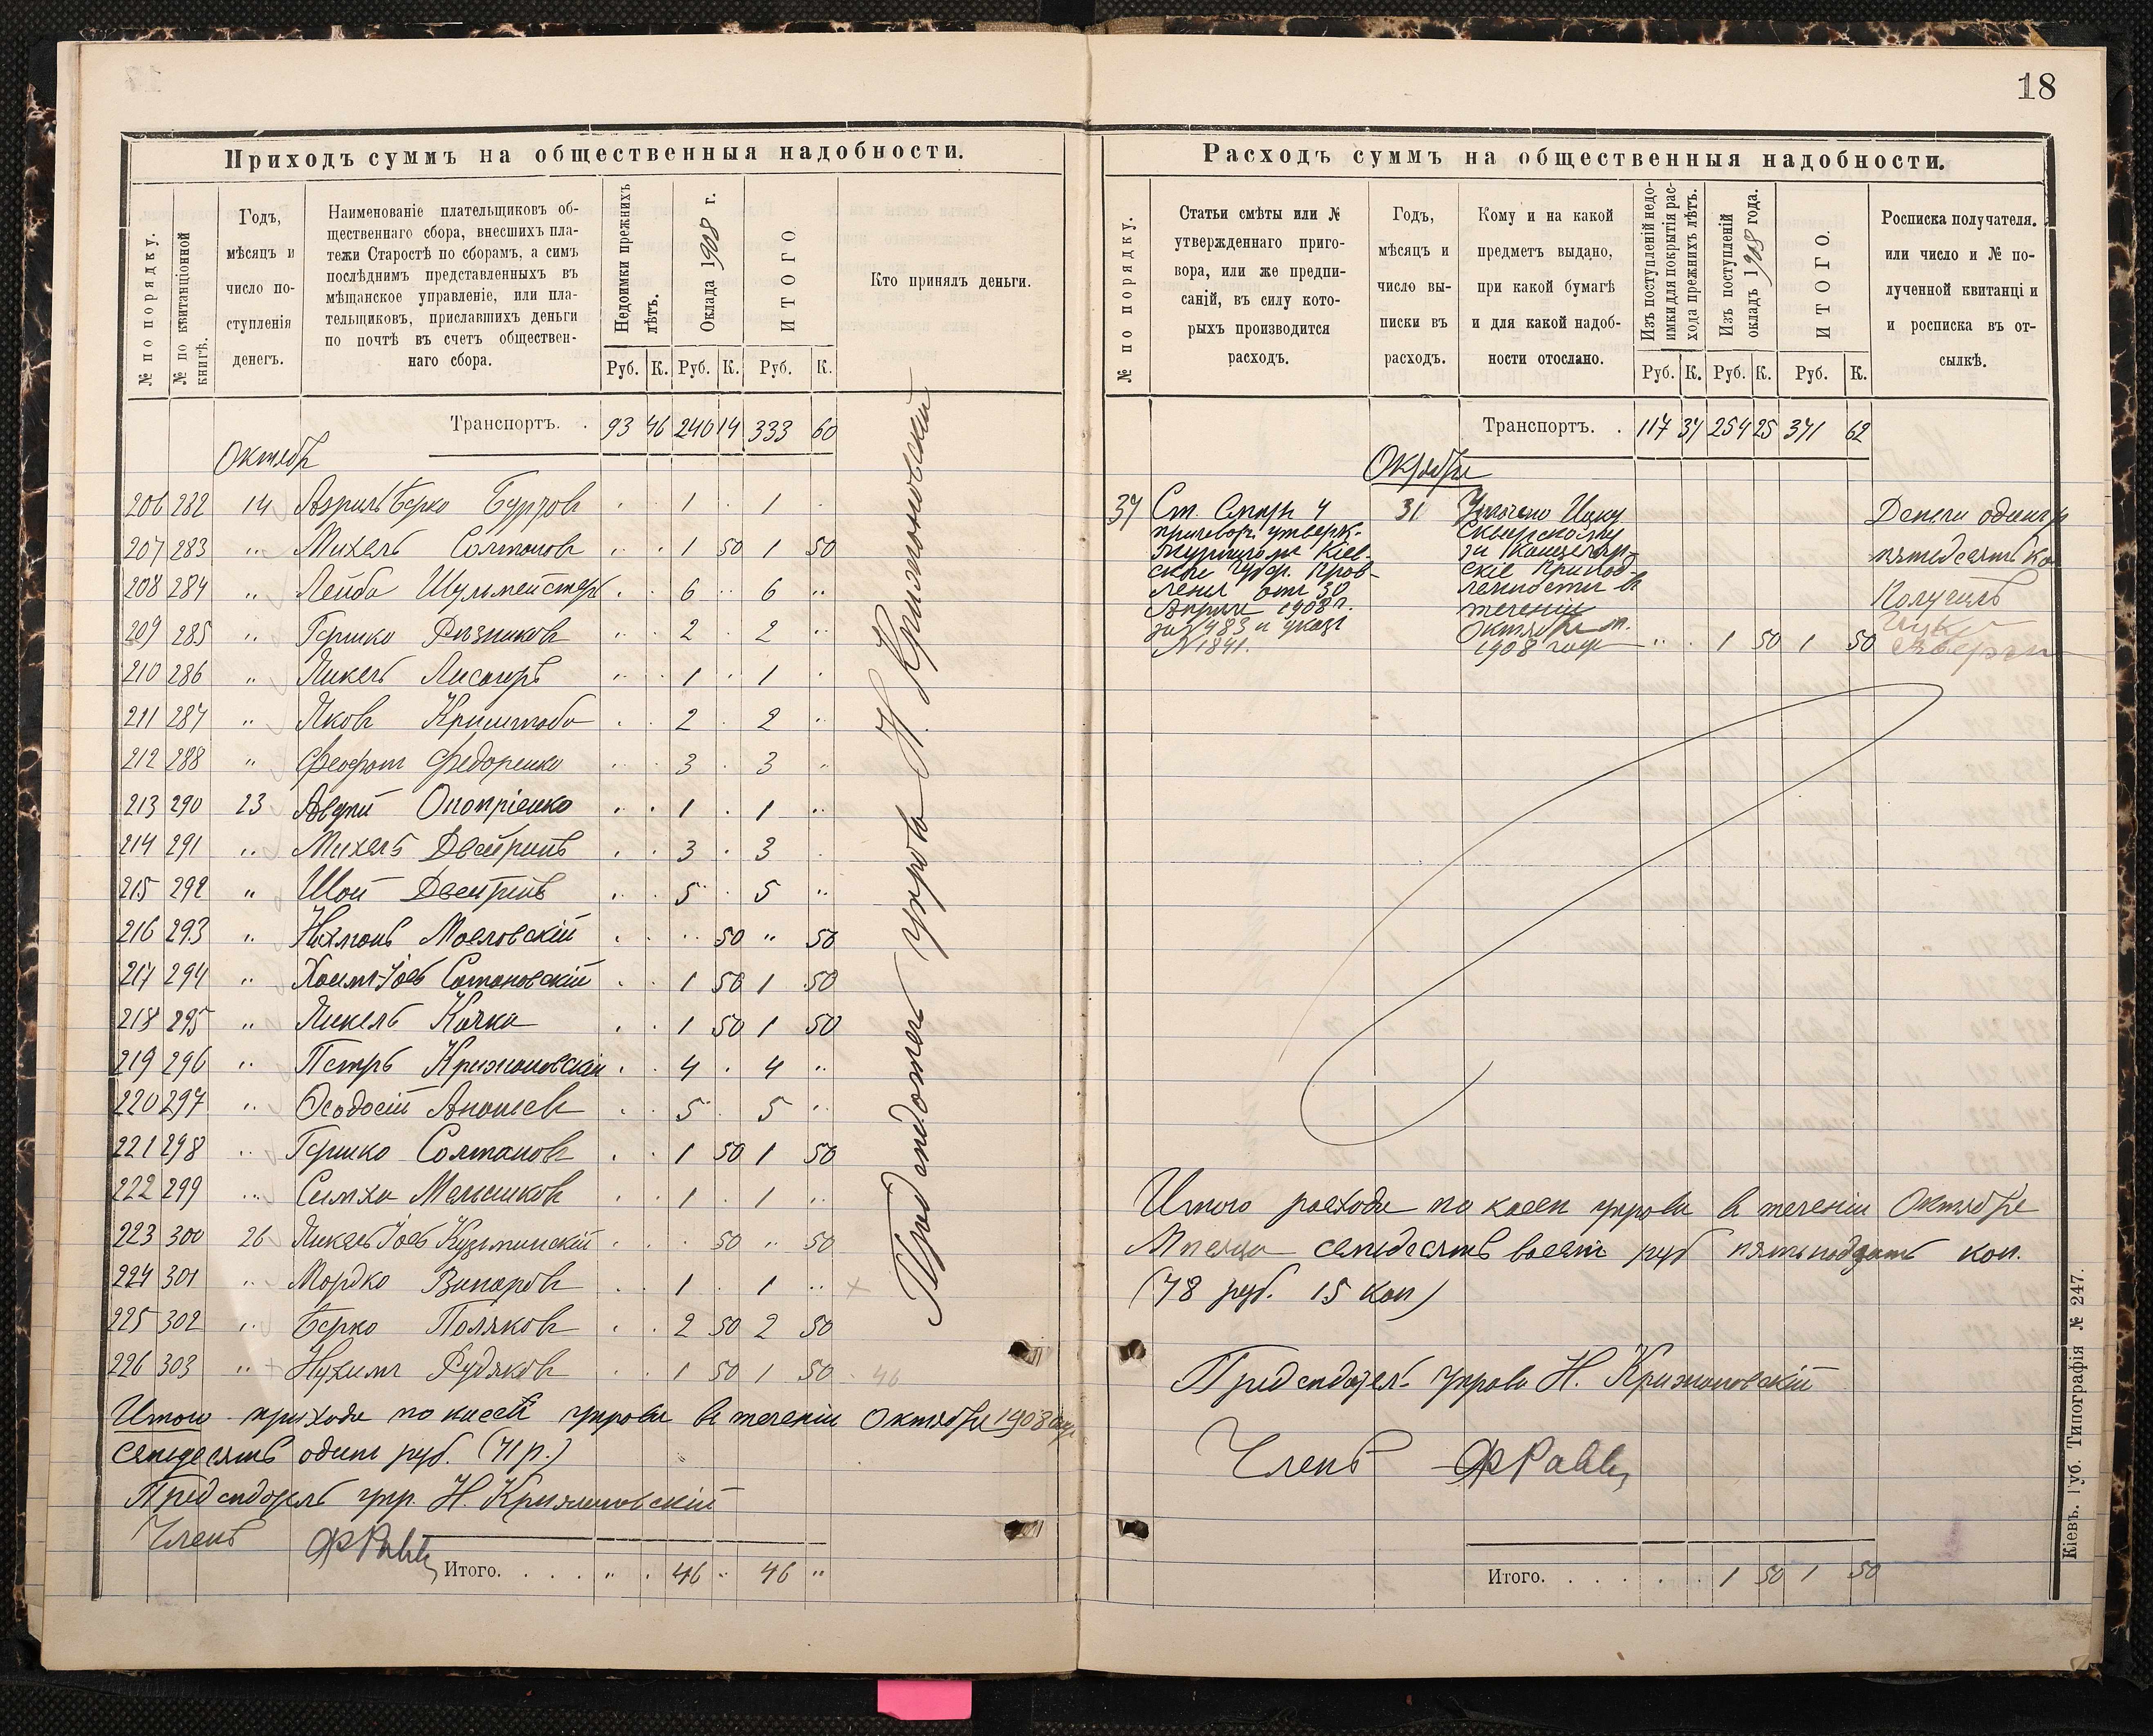 18
Приходъ суммъ на общественныя надобности.
№ по порядку.
№ по квитанціонной книгѣ.
Годъ, мѣсяцъ и число поступленія денегъ.
Наименованіе плательщиковъ общественнаго сбора, внесшихъ платежи Старостѣ по сборамъ, а симъ послѣднимъ представленныхъ въ мѣщанское управленіе, или плательщиковъ, приславшихъ деньги по почтѣ въ счетъ общественнаго сбора.
Недоимки прежнихъ лѣтъ.
Оклада 1908 г.
ИТОГО
Кто принялъ деньги.
Руб. К. Руб. К. Руб. К.
Транспортъ. . 93 46 240 14 333 60
Октябрь
206 282 14 Азрилъ Берко 1 1
207 283 " Михель Солтановъ 1 50 1 50
208 284 " Лейба Шульмейстеръ 6 6 "
209 285 " Гершко Резниковъ 2 2 "
210 286 " Янкель Лисагоръ 1 1
211 287 " Яковъ 2 2 "
212 288 " Феофанъ Федоренко 3 3 "
213 290 23 Оноприенко 1 1 "
214 291 " Михель Двейринъ 3 3
215 292 " Шая Двейринъ 5 5 "
216 293 " Нахманъ 50 " 50
217 294 " Хаимъ-Іось Сатановскій 1 50 1 50
218 295 " Янкель Качка 1 50 1 50
219 296 " Петръ Крижановскій 4 4 "
220 297 " Ѳеодосій Ананьевъ 5 5 "
221 298 " Гершко Солтановъ 1 50 1 50
222 299 " Симха Мельниковъ 1 1 "
223 300 26 Янкель Іось Кузьминскій 50 " 50
224 301 " Мордко Винаровъ 1 1 "
225 302 " Берко Поляковъ 2 50 2 50
226 303 " Нухимъ Рудяковъ 1 50 1 50 46
Итого прихода по кассѣ управы въ теченіи Октября 1908 года
семьдесятъ одинъ руб. (71 р.)
Предсѣдатель упр. Н. Крижановскій
Членъ
Итого. . . . . " . 46 " 46 "
Предсѣдатель управы Н. Крижановскій
Расходъ суммъ на общественныя надобности.
№ по порядку.
Статьи смѣты или № утвержденнаго приговора, или же предписаній, въ силу которыхъ производится расходъ.
Годъ, мѣсяцъ и число выписки въ расходъ.
Кому и на какой предметъ выдано, при какой бумагѣ и для какой надобности отослано.
Изъ поступленій недоимки для покрытія расхода прежнихъ лѣтъ.
Изъ поступленій окладъ 1908 года.
ИТОГО.
Росписка получателя. или число и № полученной квитанціи и росписка въ отсылкѣ.
Руб. К. Руб. К. Руб. К.
Транспортъ. . 117 37 254 25 371 62
Октября
37 Ст. Смѣты 4 31 Уплачено Ицку Деньги одинъ р
приговор. утвержд. Сквирскому
за Канцеляр- пятьдесятъ ко
ской Губер. Прав- скіе принад-
ленія отъ 30 лежности въ Получилъ
Апрѣля 1908 г. теченіи
за № 483 и указъ Октября м.
№ 1841. 1908 года " 1 50 1 50
Итого расхода по кассѣ управы въ теченіи Октября
Мѣсяца семьдесятъ восемь руб пятьнадцать коп.
(78 руб. 15 коп)
Предсѣдател. управы Н. Крижановскій
Членъ
Итого. . . . . . 1 50 1 50
Кіевъ. Губ. Типографія № 247.